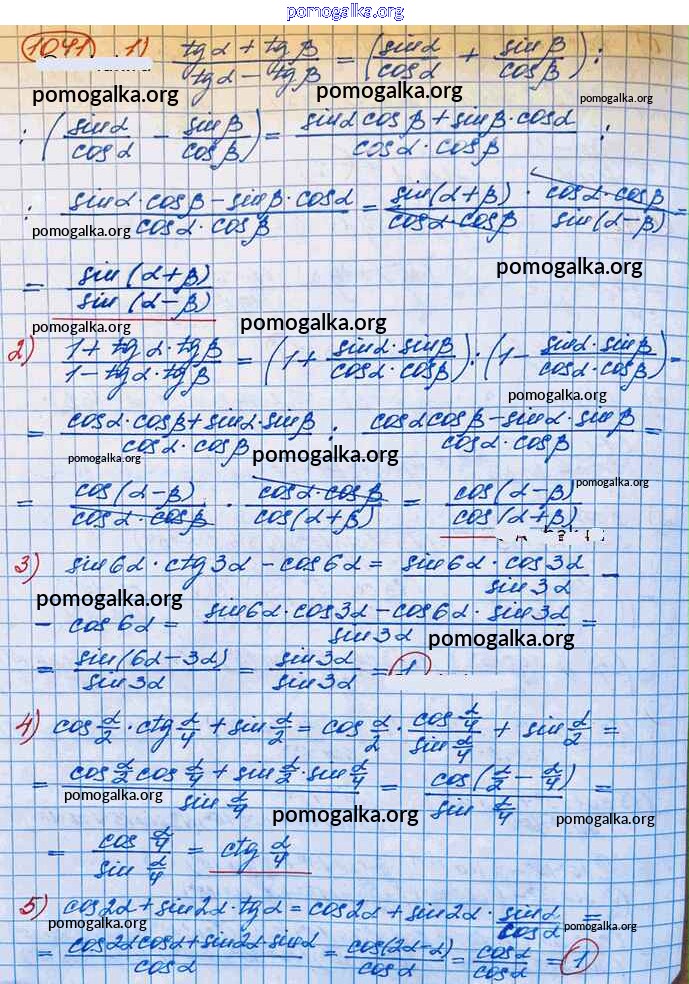 pomogalka.org
1041 1) (tgα + tgβ)/(tgα − tgβ) = (sinα/cosα + sinβ/cosβ) :
pomogalka.org pomogalka.org pomogalka.org
: (sinα/cosα − sinβ/cosβ) = (sinα cosβ + sinβ·cosα)/(cosα·cosβ) :
: (sinα·cosβ − sinβ·cosα)/(cosα·cosβ) = sin(α+β)/(cosα·cosβ) · (cosα·cosβ)/sin(α−β) =
pomogalka.org
pomogalka.org
= sin(α+β)/sin(α−β)
pomogalka.org pomogalka.org
2) (1 + tgα·tgβ)/(1 − tgα·tgβ) = (1 + (sinα·sinβ)/(cosα·cosβ)) : (1 − (sinα·sinβ)/(cosα·cosβ)) =
pomogalka.org
= (cosα·cosβ + sinα·sinβ)/(cosα·cosβ) : (cosα cosβ − sinα·sinβ)/(cosα·cosβ) =
pomogalka.org pomogalka.org
= cos(α−β)/(cosα·cosβ) · (cosα·cosβ)/cos(α+β) = cos(α−β)/cos(α+β)
pomogalka.org
3) sin6α·ctg3α − cos6α = (sin6α·cos3α)/sin3α −
pomogalka.org
− cos6α = (sin6α·cos3α − cos6α·sin3α)/sin3α =
pomogalka.org
= sin(6α−3α)/sin3α = sin3α/sin3α = 1
4) cos α/2 · ctg α/4 + sin α/2 = cos α/2 · (cos α/4)/(sin α/4) + sin α/2 =
= (cos α/2 cos α/4 + sin α/2 · sin α/4)/(sin α/4) = cos(α/2 − α/4)/(sin α/4) =
pomogalka.org pomogalka.org pomogalka.org
= (cos α/4)/(sin α/4) = ctg α/4
5) cos2α + sin2α·tgα = cos2α + sin2α · sinα/cosα =
pomogalka.org pomogalka.org
= (cos2α cosα + sin2α·sinα)/cosα = cos(2α−α)/cosα = cosα/cosα = 1